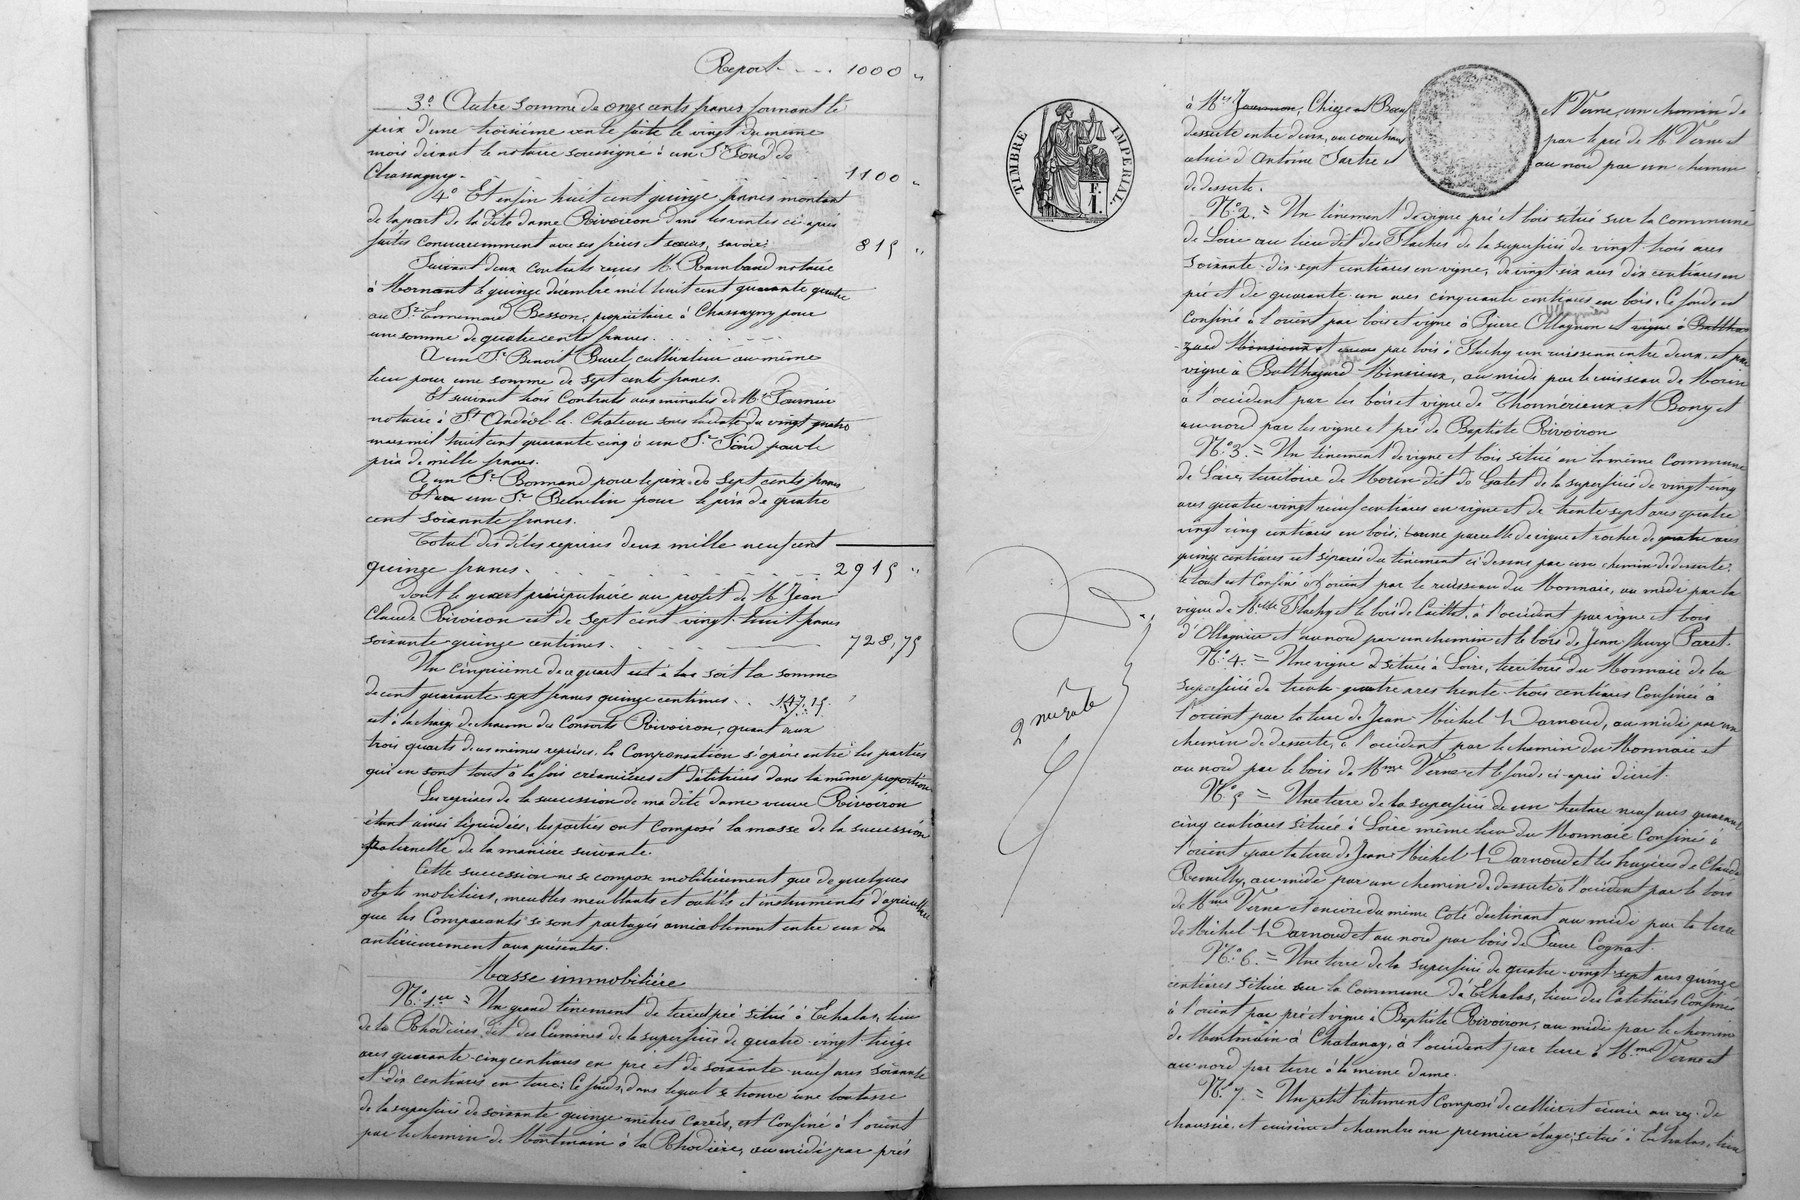 Report - - - . 1000 "
3.o Autre somme de onze cents francs formant le
prix d'une troisième vente faite le vingt du même
mois devant le notaire soussigné à un Sr Fond de
Chassagny. - - - - - 1100 "
4o Et enfin huit cent quinze francs montant
de la part de la dite dame Rivoiron dans les ventes ci-après
faites concurremment avec ses frères et sœurs, savoir: 815 "
Suivant deux contrats reçus Me Raimbaud notaire
à Mornant le quinze décembre mil huit cent quarante quatre
au Sr Ennemond Besson, propriétaire à Chassagny pour
une somme de quatre cents francs.
A un Sr Benoit Burel cultivateur au même
lieu pour une somme de sept cents francs.
Et suivant trois Contrats aux minutes de Me Fournier
notaire à St Andéol le Chateau sous la date du vingt quatre
mars mil huit cent quarante cinq à un Sr Fond pour le
prix de mille francs.
A un Sr Bonnand pour le prix de sept cents francs
Et à un Sr pour le prix de quatre
cent soixante francs.
Total des dites reprises deux mille neuf cent
quinze francs. - - - - - 2915 "
dont le quart préciputaire au profit de Mr Jean
Claude Rivoiron est de sept cent vingt-huit francs
soixante quinze centimes. - - - 728,75
Un cinquième de ce quart soit la somme
de cent quarante-sept francs quinze centimes . . 147.15.
est à la charge de chacun des Consorts Rivoiron, quant aux
trois quarts de ces mêmes reprises, la Compensation s'opère entre les parties
qui en sont tout à la fois créancières et débitrices dans la même proportion.
Les reprises de la succession de ma dite dame veuve Rivoiron
étant ainsi liquidées, les parties ont composé la masse de la succession
paternelle de la manière suivante.
Cette succession ne se compose mobilièrement que de quelques
objets mobiliers, meubles meublants et outils et instruments d'agriculture
que les Comparants se sont partagés amiablement entre eux
antérieurement aux présentes.
Masse immobilière
No 1er = Un grand tènement de terre et pré situé à Echalas, lieu
de la Rhodière, dit des Cumines de la superficie de quatre-vingt-treize
ares quarante-cinq centiares en pré et de soixante-neuf ares soixante
et dix centiares en terre; Ce fonds, dans lequel se trouve une boutasse
de la superficie de soixante quinze mètres carrés, est Confiné à l'orient
par le chemin de Montmain à la Rhodière, au midi par prés
TIMBRE IMPERIAL.
F.
1.
à Mrs Journon, Chieze et et Verne, un chemin de
desserte entre deux, au couchant par le pré de Mr Verne et
celui d'Antoine Sartre et au nord par un chemin
de desserte.
No 2. = Un tènement de vigne pré et bois situé sur la commune
de Loire au lieu dit des Flaches de la superficie de vingt-trois ares
soixante-dix-sept centiares en vigne, de vingt-six ares dix centiares en
pré et de quarante-un ares cinquante centiares en bois. Ce fonds est
Confiné à l'orient par bois et vigne à Pierre Ollagnon et vigne à Baltha-
zard Minsieux et par bois à Flachy un ruisseau entre deux, et par
vigne à Balthazard Minsieux, au midi par le ruisseau de Morin
à l'occident par les bois et vigne de Thonnérieux et Bony et
au nord par les vigne et pré de Baptiste Rivoiron
No 3. = Un tènement de vigne et bois situé en la même Commune
de Loire, territoire de Morin dit de Gatet de la superficie de vingt-cinq
ares quatre-vingt neuf centiares en vigne et de trente sept ares quatre
vingt cinq centiares en bois; une parcelle de vigne et rocher de quatre ares
quinze centiares est séparée du tènement ci-dessus par un chemin de desserte.
le tout est Confiné à l'orient par le ruisseau du Monnaie, au midi par la
vigne de Melle Flachy et le bois de Caillet, à l'occident par vigne et bois
d'Ollagnier et au nord par un chemin et le bois de Jean Fleury Paret.
No 4. = Une vigne située à Loire, territoire du Monnaie de la
superficie de trente-quatre ares trente-trois centiares Confinée à
l'orient par la terre de Jean-Michel Darnoud, au midi par un
chemin de desserte, à l'occident par le chemin du Monnaie et
au nord par le bois de Mme Verne et le fonds ci-après décrit.
No 5 = Une terre de la superficie de un hectare neuf ares quarante
cinq centiares située à Loire même lieu du Monnaie Confinée à
l'orient par la terre de Jean-Michel Darnoud et les bruyères de Claude
Remilly, au midi par un chemin de desserte à l'occident par le bois
de Mme Verne et encore du même Coté déclinant au midi par la terre
de Michel Darnoud et au nord par bois de Pierre Cognat.
No 6. = Une terre de la superficie de quatre-vingt-sept ares quinze
centiares située sur la Commune d'Echalas, lieu des Confinée
à l'orient par pré et vigne à Baptiste Rivoiron, au midi par le chemin
de Montmain à Chatanay, à l'occident par terre à Mme Verne et
au nord par terre à la même dame.
No 7. = Un petit bâtiment Composé de cellier et écurie au rez-de
chaussée, et cuisine et chambre au premier étage, situé à Echalas, lieu